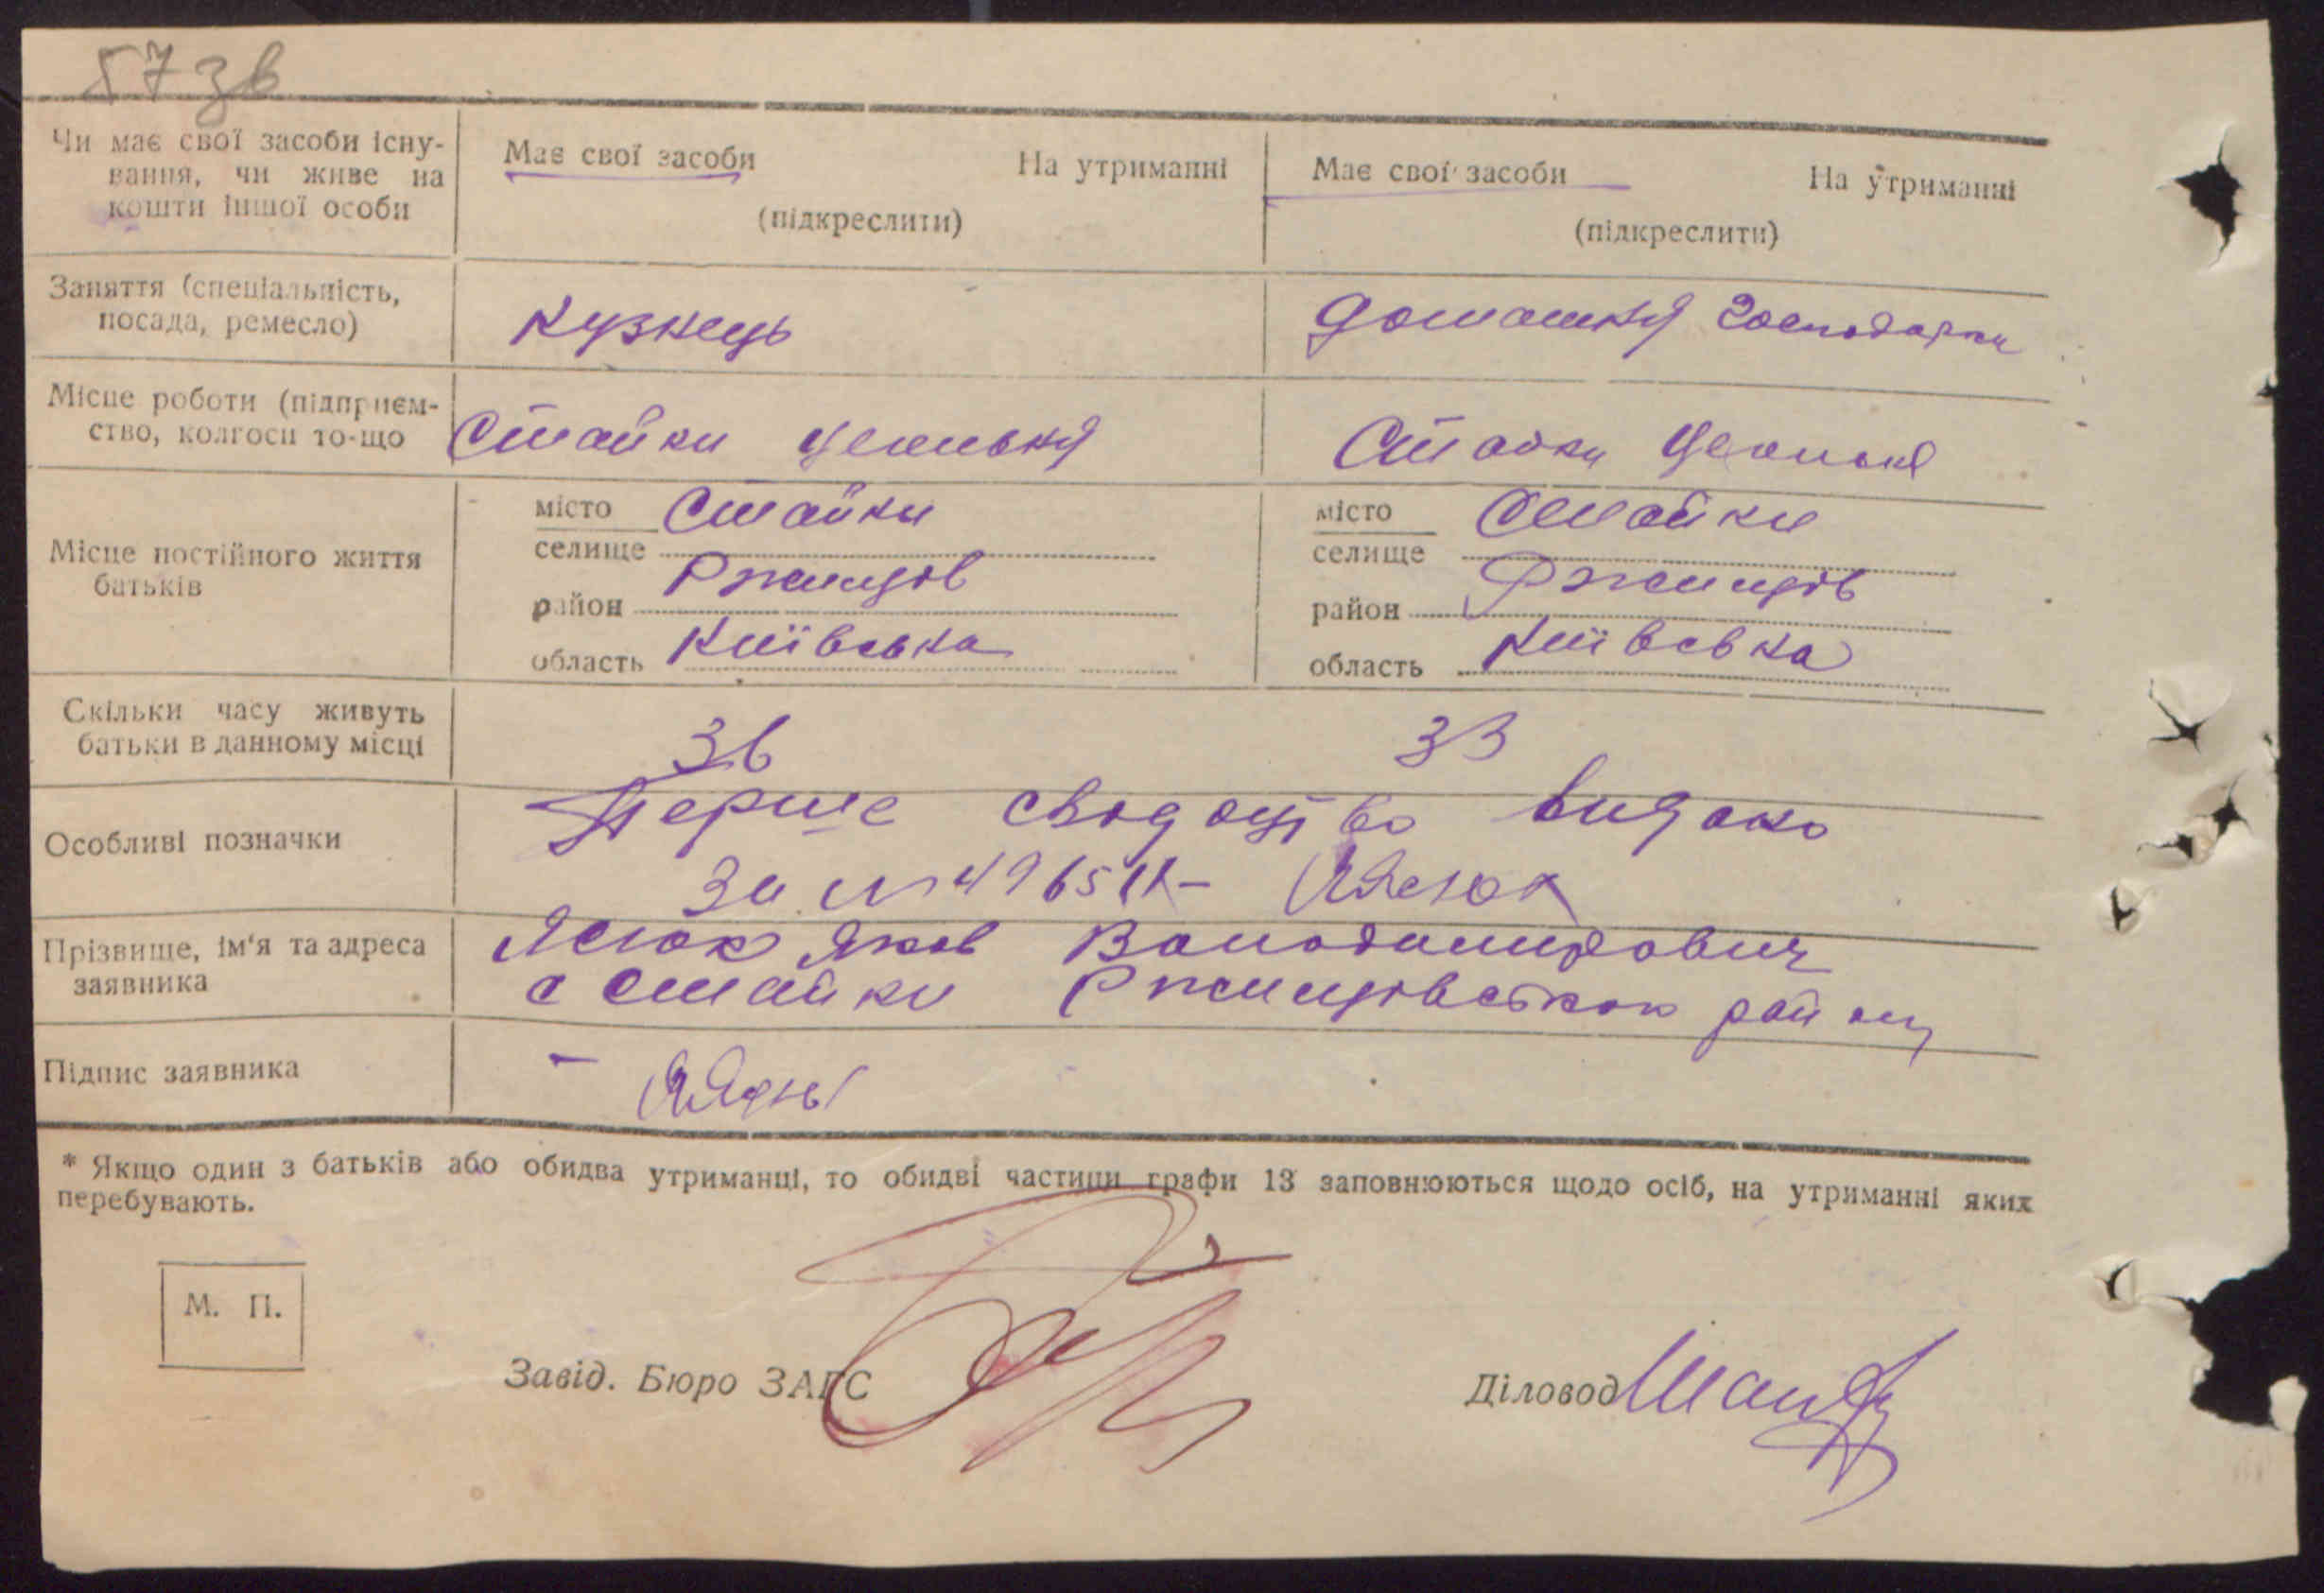 57 зв
Чи має свої засоби існу-
вання, чи живе на
кошти іншої особи
Має свої засоби На утриманні
(підкреслити)
Має свої засоби На утриманні
(підкреслити)
Заняття (спеціальність,
посада, ремесло)
Кузнець
Домашня Господарка
Місце роботи (підприєм-
ство, колгосп то-що
Стайки
Стайки
Місце постійного життя
батьків
місто Стайки
селище
район Ржищів
область Київська
місто Стайки
селище
район Ржищів
область Київська
Скільки часу живуть
батьки в данному місці
36
33
Особливі позначки
Перше свідоцтво видано
за №
Прізвище, ім'я та адреса
заявника
Ясюк Яков Володимирович
с Стайки Ржищівського району
Підпис заявника
* Якщо один з батьків або обидва утриманці, то обидві частини графи 13 заповнюються щодо осіб, на утриманні яких
перебувають.
М. П.
Завід. Бюро ЗАГС
Діловод